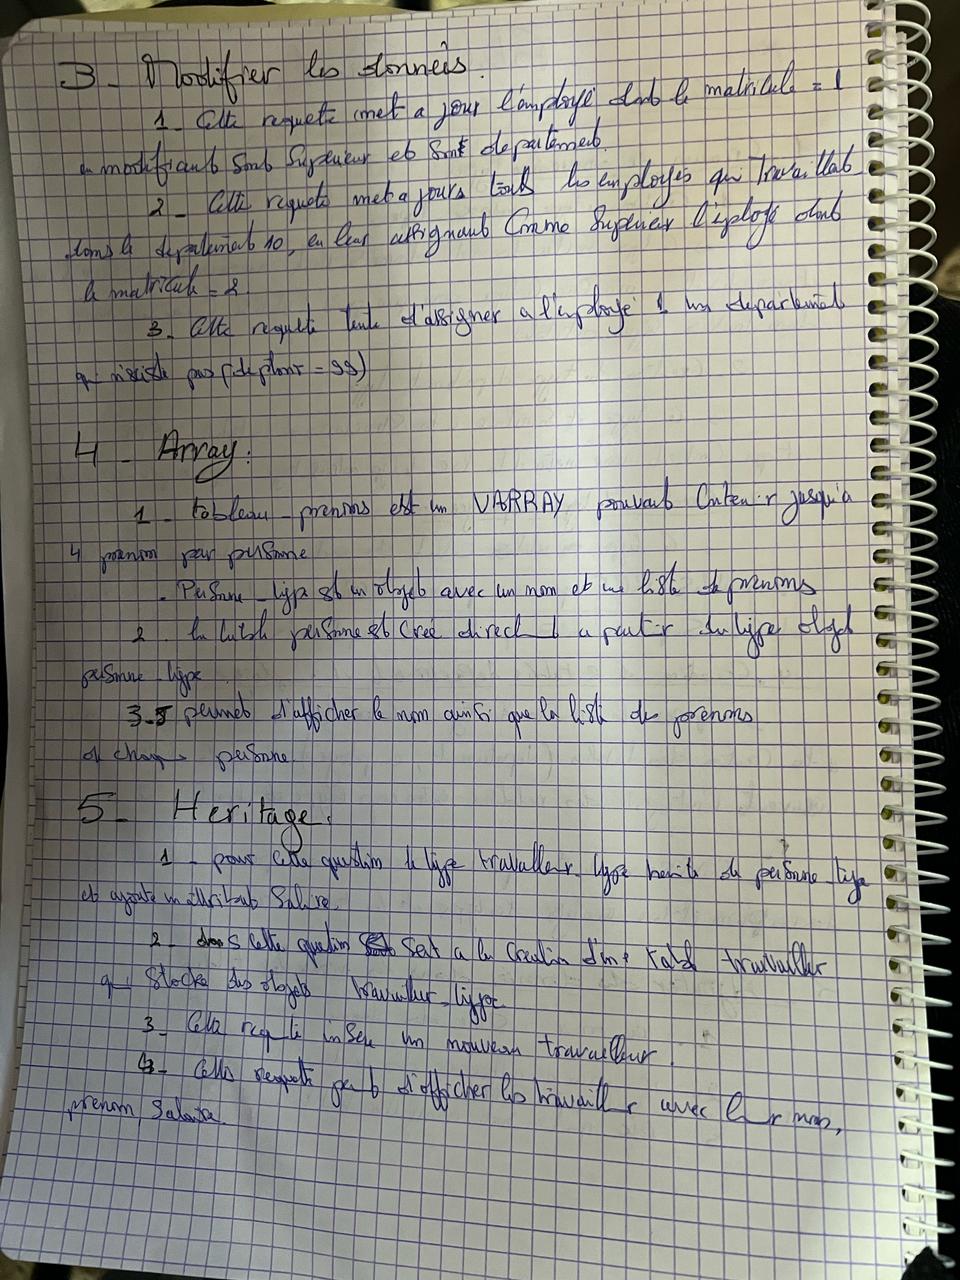 3 - Modifier les données.
1 - Cette requete met a jour l'employé dont le matricule = 1
en modificant sont Superieur et sont departement.
2 - Cette requete met a jours touts les employés qui Travaillat
dans le departement 10, en leur assignant Comme Superieur l'eploye dont
le matricule = 2
3 - Cette requete tente d'assigner a l'employé 1 un departement
qui n'existe pas ( = 99)
4 - Array :
1 - tableau - prenoms est un VARRAY pouvant Contenir jusqu'a
4 prenom par personne
- Personne - type est un objet avec un nom et une liste de prenoms
2 - la table personne est Créé direct a partir du type objet
personne - type
3 - permet d'afficher le nom ainsi que la liste des prenoms
de chaque personne
5 - Heritage.
1 - pour cette question le type travailleur - type herite de personne - type
et ajoute un attribut Salire.
2 - dans cette question sert a la Creation d'une table travailler
qui Stocke des objets travailleur - type
3 - Cette requete insere un nouveau travailleur.
4 - Cette requete d'afficher les travaill r avec leur nom,
prenom, Salaire